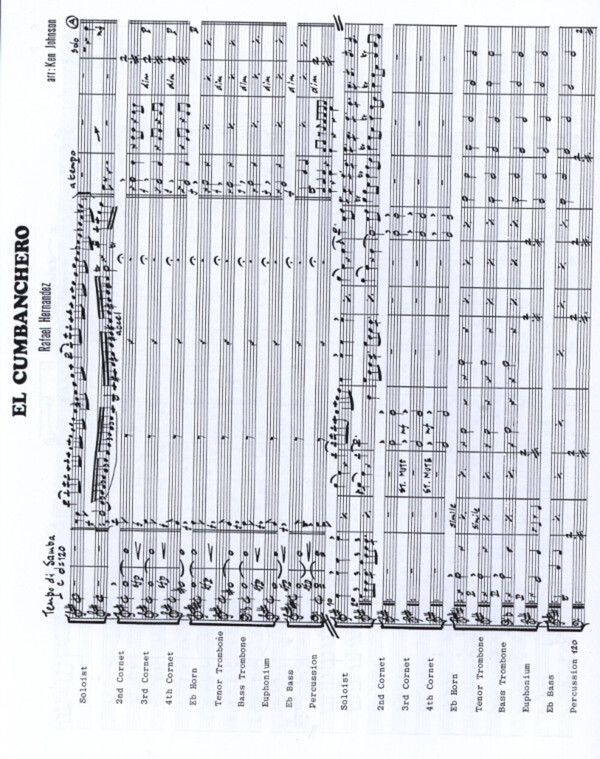 EL CUMBANCHERO
Rafael Hernandez
arr: Ken Johnson
Tempo di Samba
a tempo
solo
A
accel
Soloist
2nd Cornet
3rd Cornet
4th Cornet
Eb Horn
Tenor Trombone
Bass Trombone
Euphonium
Eb Bass
Percussion
dim
dim
dim
dim
dim
dim
dim
Soloist
2nd Cornet
3rd Cornet
ST. MUTE
4th Cornet
ST. MUTE
Eb Horn
simile
Tenor Trombone
simile
Bass Trombone
Euphonium
Eb Bass
Percussion